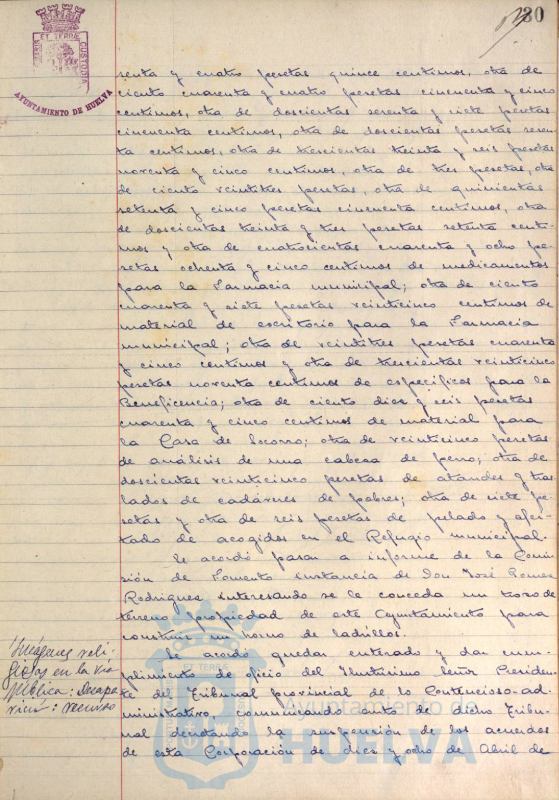 80
PORTUS MARIS ET TERRÆ CUSTODIA
AYUNTAMIENTO DE HUELVA
senta y cuatro pesetas quince centimos, otra de
ciento cuarenta y cuatro pesetas cincuenta y cinco
centimos, otra de doscientas sesenta y siete pesetas
cincuenta centimos, otra de doscientas pesetas seten-
ta centimos, otra de trescientas treinta y seis pesetas
noventa y cinco centimos, otra de tres pesetas, otra
de ciento veintitres pesetas, otra de quinientas
setenta y cinco pesetas cincuenta centimos, otra
de doscientas treinta y tres pesetas setenta centi-
mos y otra de cuatrocientas cuarenta y ocho pe-
setas ochenta y cinco centimos de medicamentos
para la Farmacia municipal; otra de ciento
cuarenta y siete pesetas veinticinco centimos de
material de escritorio para la Farmacia
municipal; otra de veintitres pesetas cuarenta
y cinco centimos y otra de trescientas veinticinco
pesetas noventa centimos de especificos para la
Beneficencia; otra de ciento diez y seis pesetas
cuarenta y cinco centimos de material para
la Casa de Socorro; otra de veinticinco pesetas
de análisis de una cabeza de perro; otra de
doscientas veinticinco pesetas de ataudes y tras-
lados de cadáveres de pobres; otra de siete pe-
setas y otra de seis pesetas de pelado y afei-
tado de acogidos en el Refugio municipal.
Se acordó pasar a informe de la Comi-
sión de Fomento instancia de Don José Gomez
Rodriguez interesando se le conceda un trozo de
terreno propiedad de este Ayuntamiento para
construir un horno de ladrillos.
Imágenes reli-
giosas en la via
pública: Desapa-
rición: recurso
Se acordó quedar enterado y dar cum-
plimiento de oficio del Ilustrisimo Señor Presiden-
te del Tribunal provincial de lo Contencioso-ad-
ministrativo, comunicando auto de dicho Tribu-
nal decretando la suspensión de los acuerdos
de esta Corporación de diez y ocho de Abril de
Ayuntamiento de
HUELVA